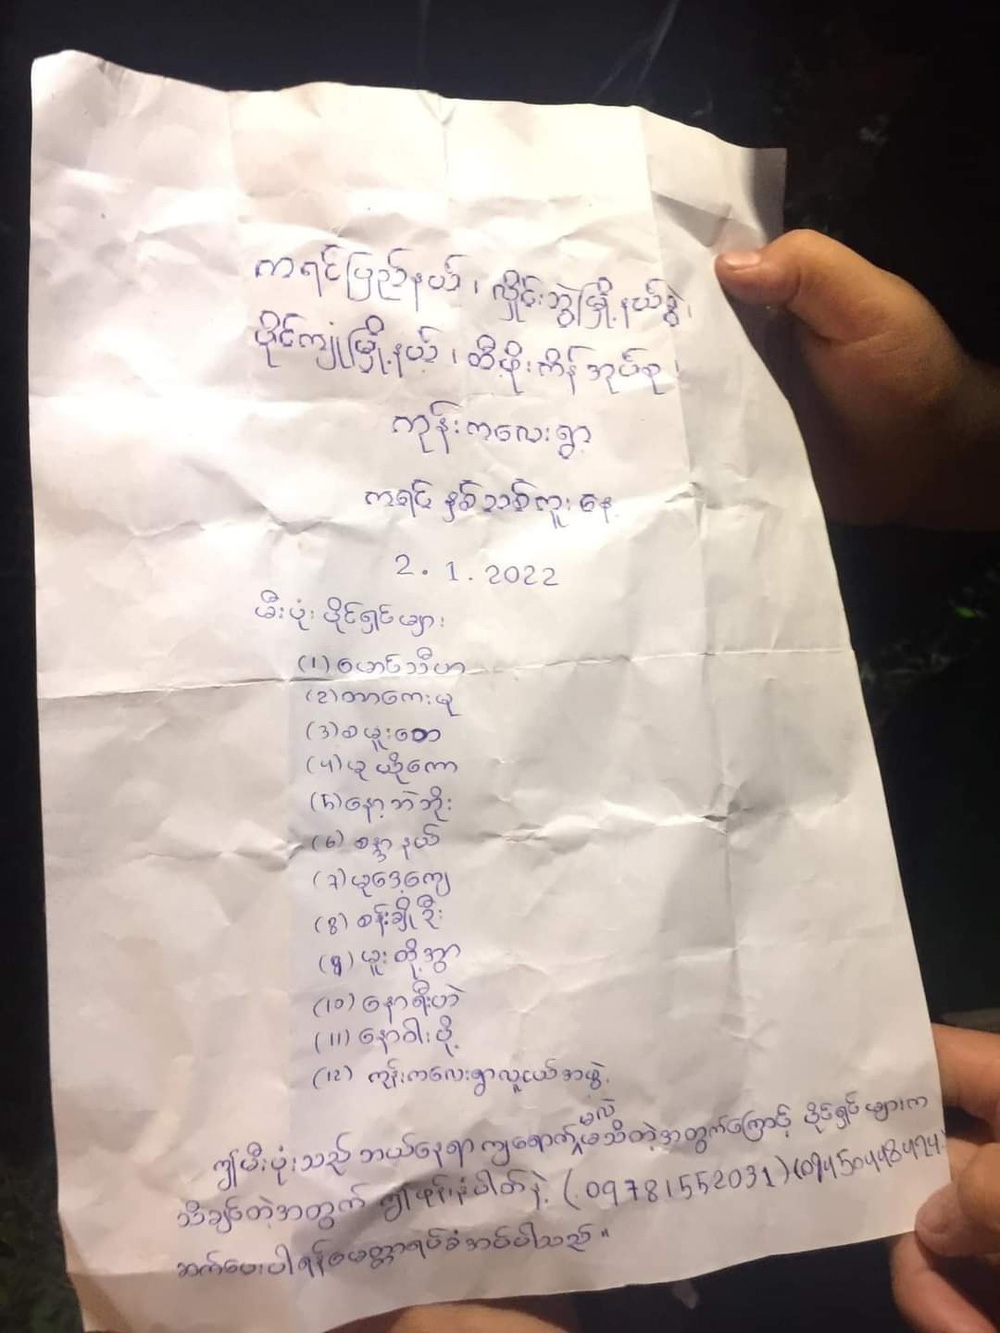 ကရင်ပြည်နယ်၊ လှိုင်းဘွဲမြို့နယ်ခွဲ၊
ပိုင်ကျုံမြို့နယ်၊ တီဖိုးကိန်အုပ်စု၊
ကုန်းကလေးရွာ
ကရင် နှစ်သစ်ကူးနေ့
2.1.2022
မီးပုံး ပိုင်ရှင်များ
(1) စောင်သီဟ
(2) တာကေးမူ
(3) စမူးစော
(4) ယုယိုကော
(5) နော့ဘဲဘိုး
(6) စန္ဒာနယ်
(7) ယုဒေ့ကျေ
(8) စန်းချိုဦး
(9) ယူးထို့အွာ
(10) နောရီးဟဲ
(11) နောဝါးဖို့
(12) ကုန်းကလေးရွာလူငယ်အဖွဲ့
ဤမီးပုံးသည် ဘယ်နေရာကျရောက်မှန်းမသိတဲ့အတွက်ကြောင့် ပိုင်ရှင်များက
သိချင်တဲ့အတွက် ဤဖုန်းနံပါတ်နဲ့ (09781552031)(09450448494)
ဆက်ပေးပါရန်မေတ္တာရပ်ခံအပ်ပါသည်။